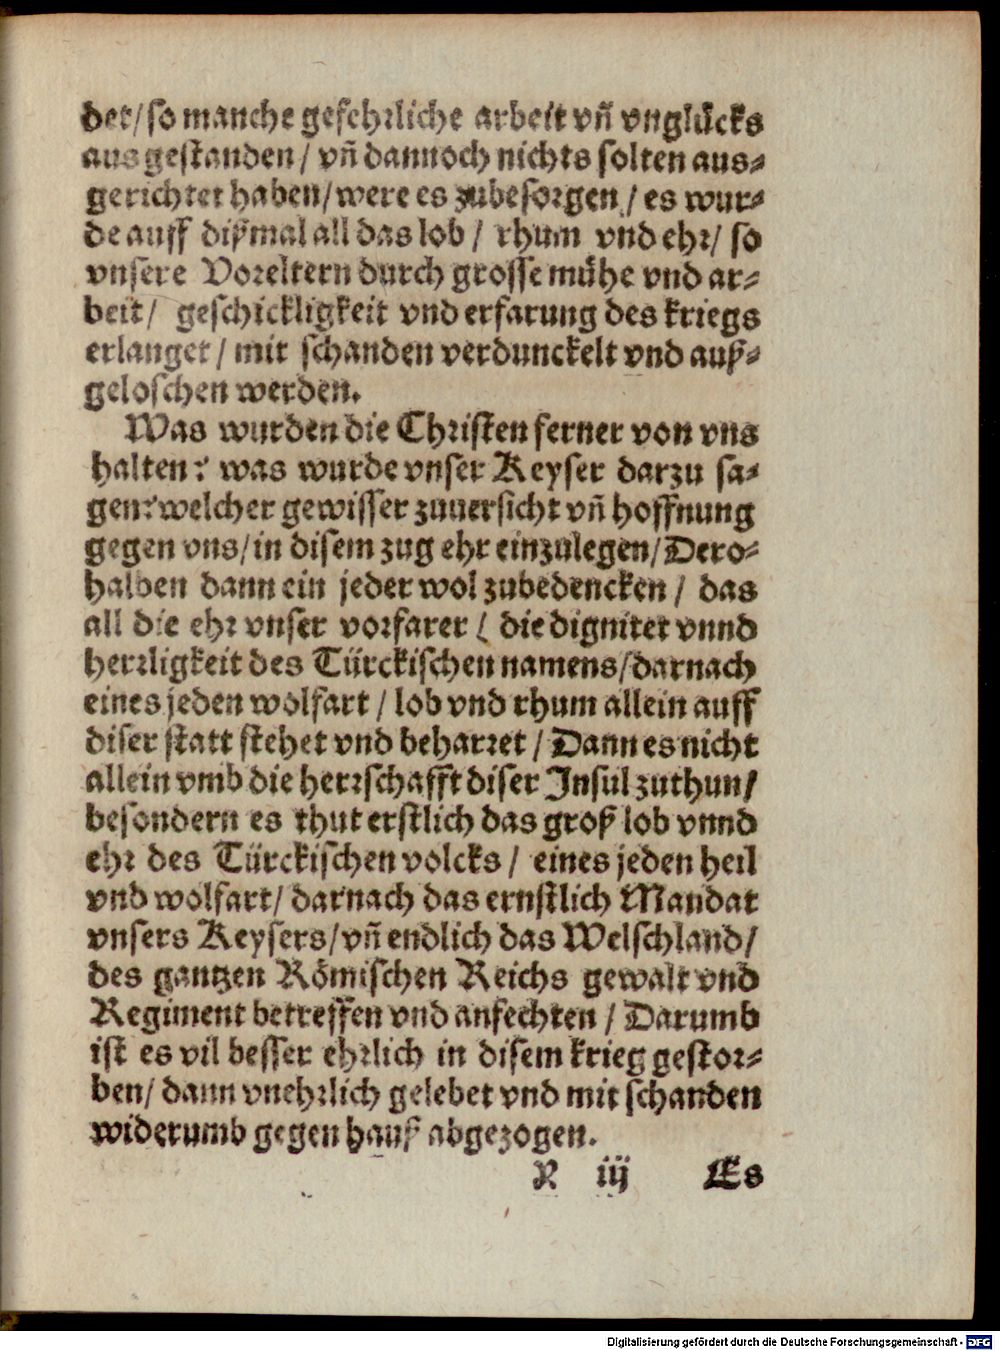 det/so manche gefehrliche arbeit vn̄ vnglücks
ausgestanden/ vn̄ dannoch nichts solten aus⸗
gerichtet haben/were es zubesorgen/ es wur⸗
de auff dißmal all das lob/ rhum vnd ehr/ so
vnsere Voreltern durch grosse mühe vnd ar⸗
beit/ geschickligkeit vnd erfarung des kriegs
erlanget/ mit schanden verdunckelt vnd auß⸗
geloschen werden.
Was wurden die Christen ferner von vns
halten? was wurde vnser Keyser darzu sa⸗
gen?welcher gewisser zuuersicht vn̄ hoffnung
gegen vns/in disem zug ehr einzulegen/Dero⸗
halben dann ein jeder wol zubedencken/ das
all die ehr vnser vorfarer/ die dignitet vnnd
herrligkeit des Türckischen namens/darnach
eines jeden wolfart/ lob vnd rhum allein auff
diser statt stehet vnd beharret/ Dann es nicht
allein vmb die herrschafft diser Insul zuthun/
besondern es thut erstlich das groß lob vnnd
ehr des Türckischen volcks/ eines jeden heil
vnd wolfart/ darnach das ernstlich Mandat
vnsers Keysers/vn̄ endlich das Welschland/
des gantzen Römischen Reichs gewalt vnd
Regiment betreffen vnd anfechten/ Darumb
ist es vil besser ehrlich in disem krieg gestor⸗
ben/ dann vnehrlich gelebet vnd mit schanden
widerumb gegen hauß abgezogen.
R iij Es
Digitalisierung gefördert durch die Deutsche Forschungsgemeinschaft - DFG